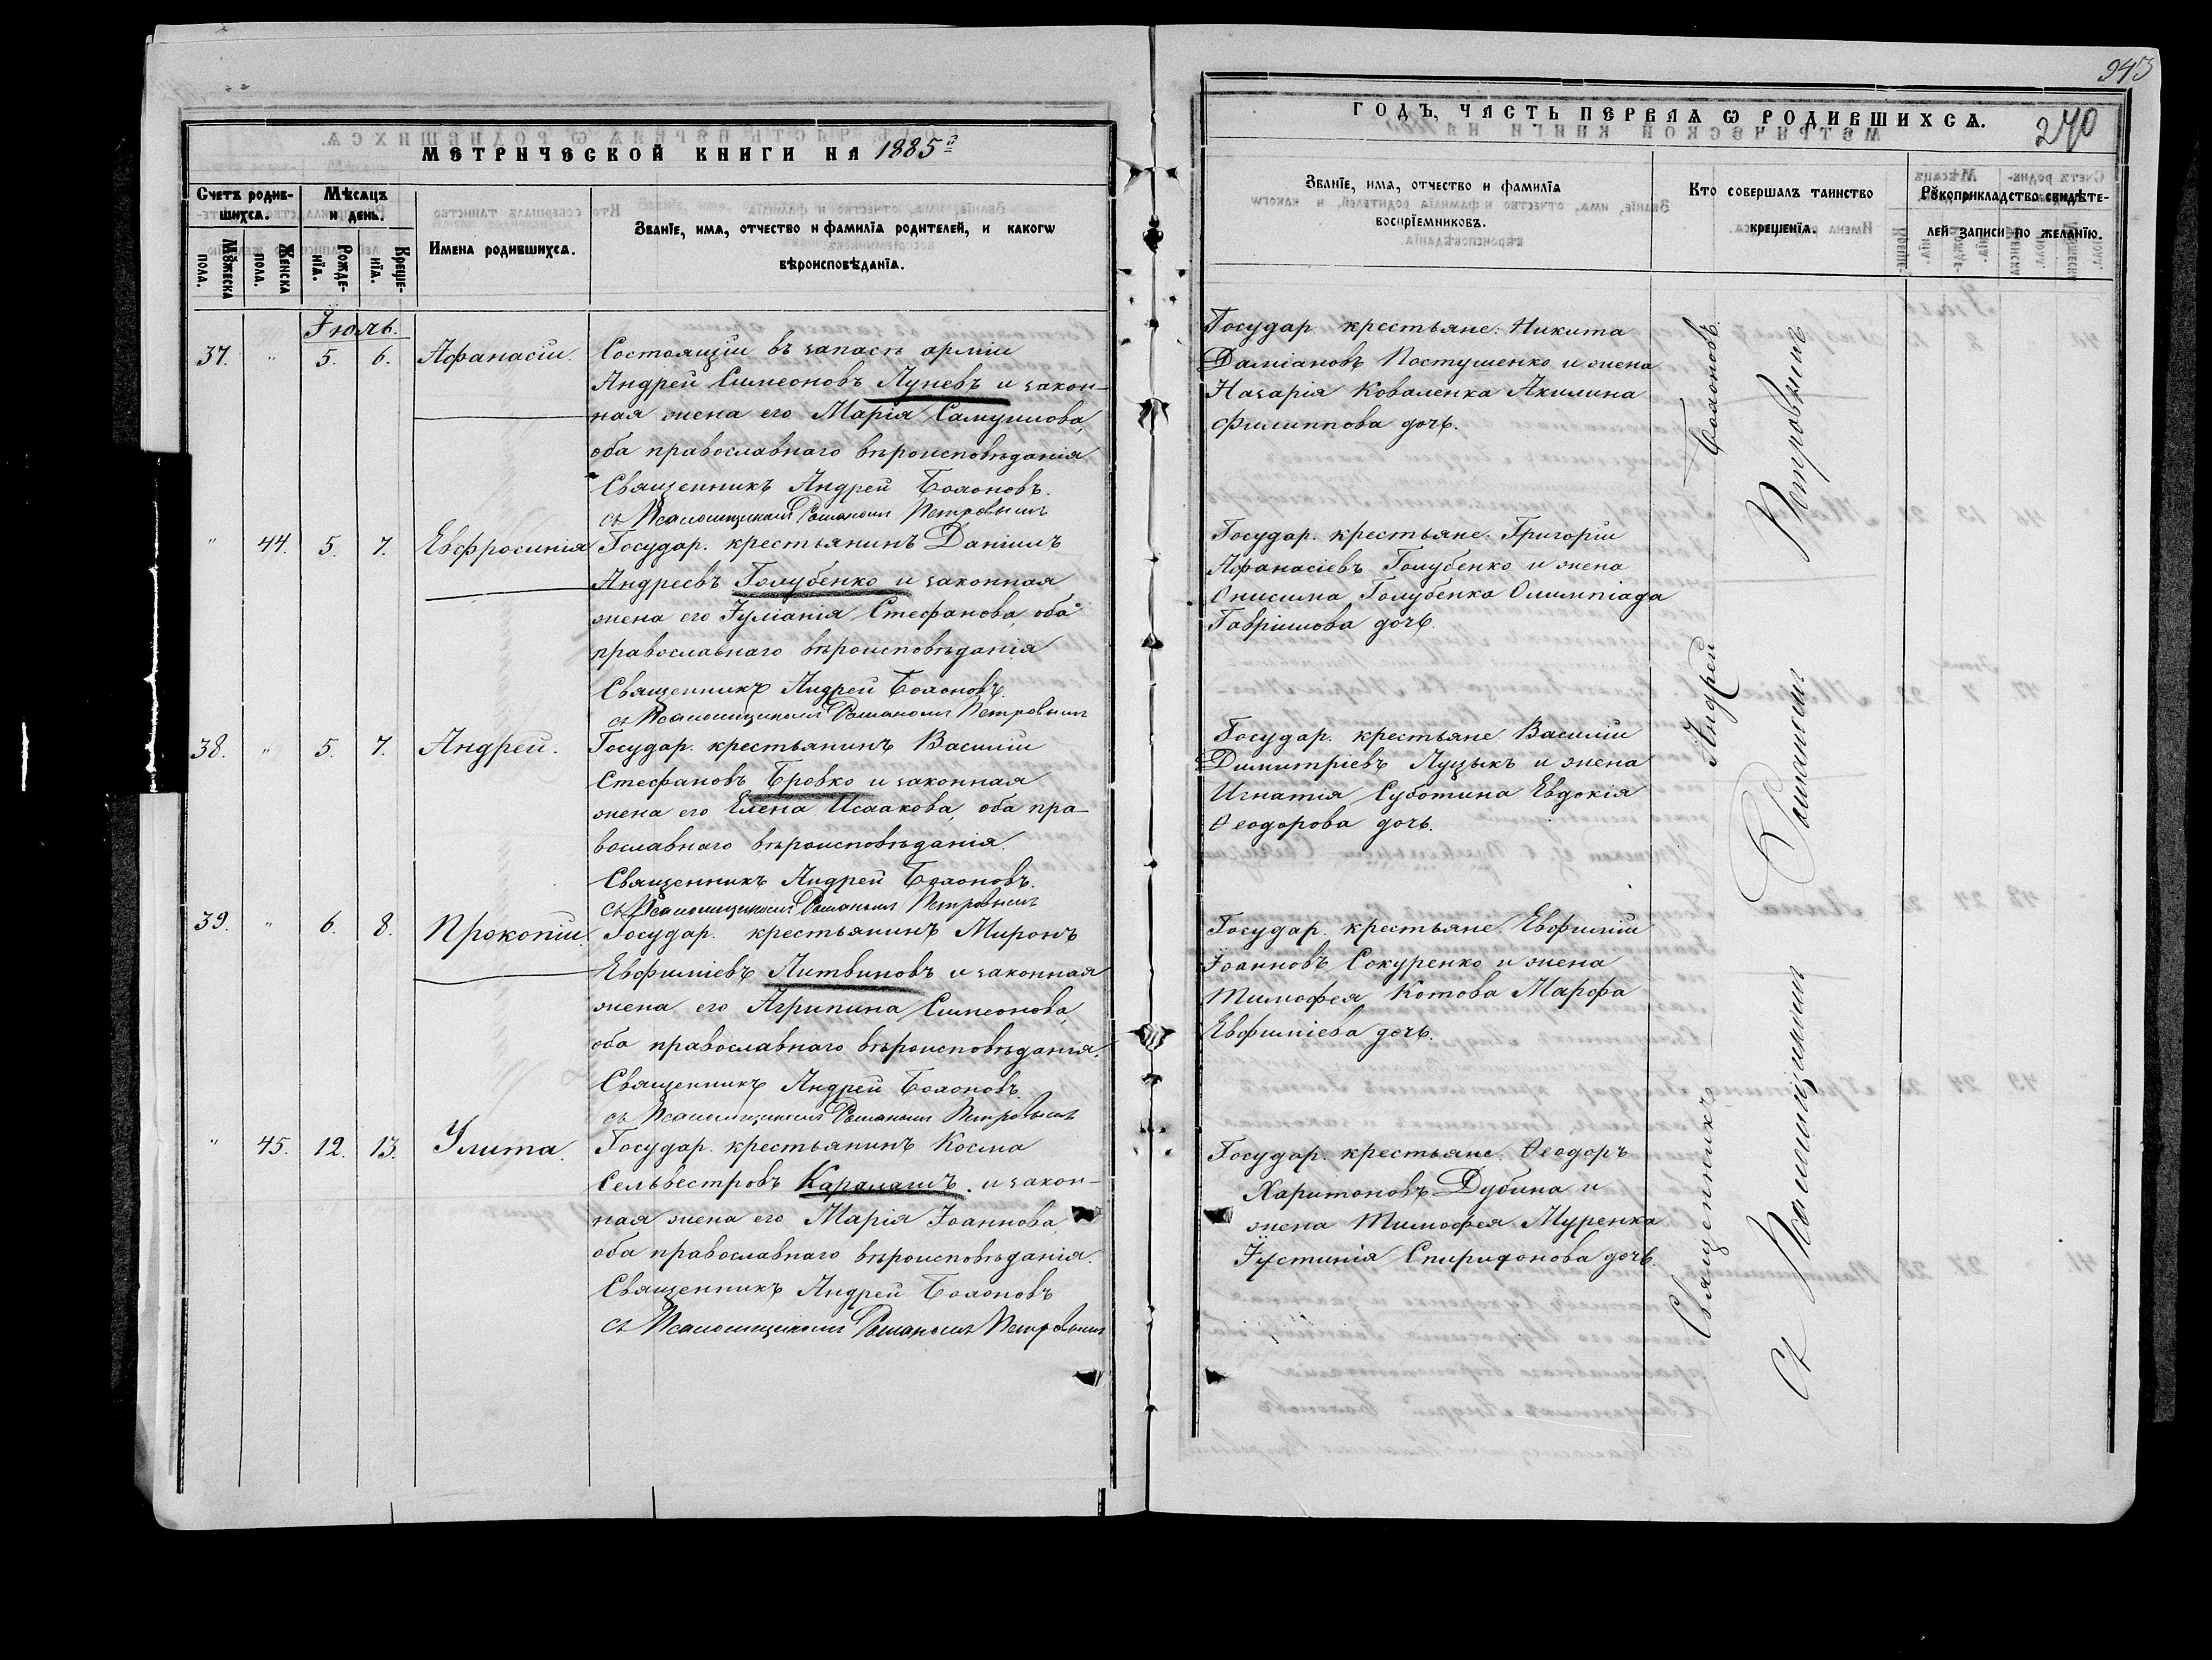 943
МЕТРИЧЕСКОЙ КНИГИ НА 1885й
ГОДЪ, ЧАСТЬ ПЕРВАЯ Ѡ РОДИВШИХСѦ.
240
Счетъ родив-
шихсѧ.
Мѣсѧцъ
и день.
Мꙋжеска
пола.
Женска
пола.
Рожде-
нїѧ.
Креще-
нїѧ.
Имена родившихсѧ.
Званїе, имѧ, отчество и фамилїѧ родителей, и какогѡ
вѣроисповѣданїѧ.
Званїе, имѧ, отчество и фамилїѧ
воспрїемниковъ.
Кто совершалъ таинство
крещенїѧ.
Рꙋкоприкладство свидѣте-
лей записи по желанїю.
Іюль.
37. " 5. 6. Афанасій.
Состоящій въ запасѣ арміи
Андрей Симеоновъ Лупевъ и закон-
ная жена его Марія Самуилова,
оба православнаго вѣроисповѣданія
Священникъ Андрей Солоновъ.
съ Псаломщикомъ Романомъ Петровымъ
Государ. крестьяне: Никита
Даміановъ Пастушенко и жена
Назарія Коваленка Акилина
Филиппова дочь.
" 44. 5. 7. Евфросинія
Государ. крестьянинъ Даніилъ
Андреевъ Голубенко и законная
жена его Іуліанія Стефанова, оба
православнаго вѣроисповѣданія
Священникъ Андрей Солоновъ.
съ Псаломщикомъ Романомъ Петровымъ
Государ. крестьяне: Григорій
Афанасіевъ Голубенко и жена
Онисима Голубенка Олимпіада
Гавріилова дочь.
38. " 5. 7. Андрей.
Государ. крестьянинъ Василій
Стефановъ Бровко и законная
жена его Елена Исаакова, оба пра-
вославнаго вѣроисповѣданія.
Священникъ Андрей Солоновъ.
съ Псаломщикомъ Романомъ Петровымъ
Государ. крестьяне Василій
Димитріевъ Луцыкъ и жена
Игнатія Суботина Евдокія
Ѳеодорова дочь.
39. " 6. 8. Прокопій.
Государ. крестьянинъ Миронъ
Евфиміевъ Литвиновъ и законная
жена его Агрипина Симеонова,
оба православнаго вѣроисповѣданія.
Священникъ Андрей Солоновъ.
съ Псаломщикомъ Романомъ Петровымъ
Государ. крестьяне. Евфимій
Іоанновъ Сокуренко и жена
Тимофея Котова Марфа
Евфиміева дочь.
" 45. 12. 13. Улита.
Государ. крестьянинъ Косма
Сельвестровъ Карамашъ. и закон-
ная жена его Марія Іоаннова,
оба православнаго вѣроисповѣданія.
Священникъ Андрей Солоновъ
съ Псаломщикомъ Романомъ Петровымъ
Государ. крестьяне. Ѳеодоръ
Харитоновъ Дубина и
жена Тимофея Муренка
Іустинія Спиридонова дочь.
Священникъ Андрей Солоновъ.
съ Псаломщикомъ Романомъ Петровымъ